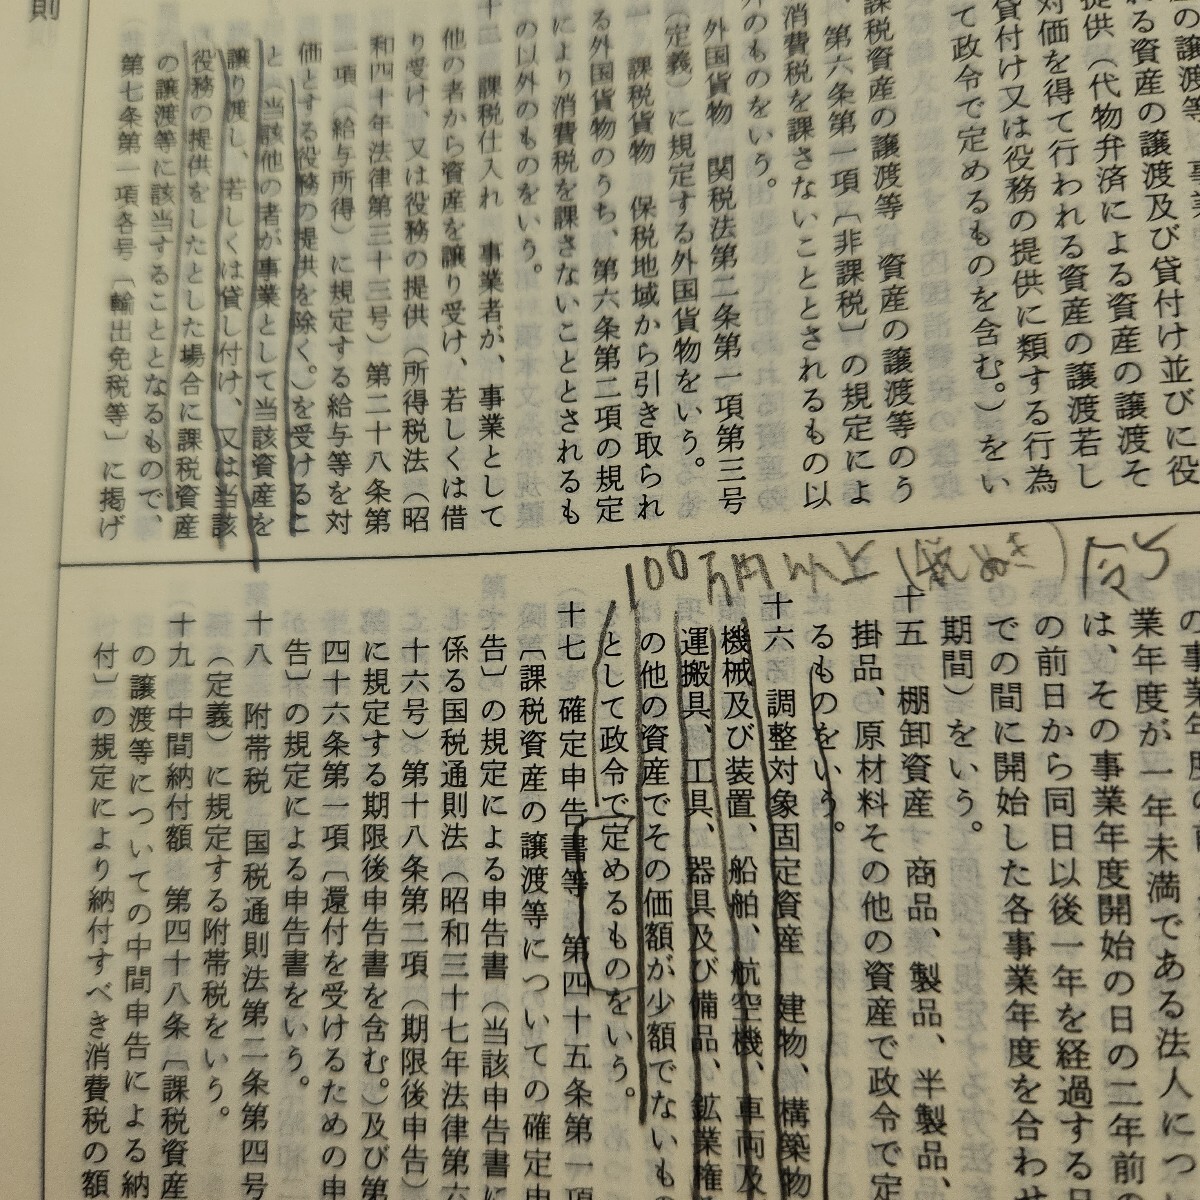 の譲渡等 事業
る資産の譲渡及び貸付け並びに役
提供(代物弁済による資産の譲渡そ
対価を得て行われる資産の譲渡若し
貸付け又は役務の提供に類する行為
て政令で定めるものを含む。)をい
課税資産の譲渡等 資産の譲渡等のう
、第六条第一項〔非課税〕の規定によ
消費税を課さないこととされるもの以
外のものをいう。
外国貨物 関税法第二条第一項第三号
(定義)に規定する外国貨物をいう。
一 課税貨物 保税地域から引き取られ
る外国貨物のうち、第六条第二項の規定
により消費税を課さないこととされるも
の以外のものをいう。
十二 課税仕入れ 事業者が、事業として
他の者から資産を譲り受け、若しくは借
り受け、又は役務の提供(所得税法(昭
和四十年法律第三十三号)第二十八条第
一項(給与所得)に規定する給与等を対
価とする役務の提供を除く。)を受けるこ
と(当該他の者が事業として当該資産を
譲り渡し、若しくは貸し付け、又は当該
役務の提供をしたとした場合に課税資産
の譲渡等に該当することとなるもので、
第七条第一項各号〔輸出免税等〕に掲げ
則
100万円以上(税ぬき)令5
の事業年度の
業年度が一年未満である法人につ
は、その事業年度開始の日の二年前
の前日から同日以後一年を経過する
での間に開始した各事業年度を合わせ
期間)をいう。
十五 棚卸資産 商品、製品、半製品、
掛品、原材料その他の資産で政令で定
るものをいう。
十六 調整対象固定資産 建物、構築物
機械及び装置、船舶、航空機、車両及
運搬具、工具、器具及び備品、鉱業権
の他の資産でその価額が少額でないもの
として政令で定めるものをいう。
十七 確定申告書等 第四十五条第一項
〔課税資産の譲渡等についての確定申
告〕の規定による申告書(当該申告書に
係る国税通則法(昭和三十七年法律第六
十六号)第十八条第二項(期限後申告)
に規定する期限後申告書を含む。)及び第
四十六条第一項〔還付を受けるための申
告〕の規定による申告書をいう。
十八 附帯税 国税通則法第二条第四号
(定義)に規定する附帯税をいう。
十九 中間納付額 第四十八条〔課税資産
の譲渡等についての中間申告による納
付〕の規定により納付すべき消費税の額